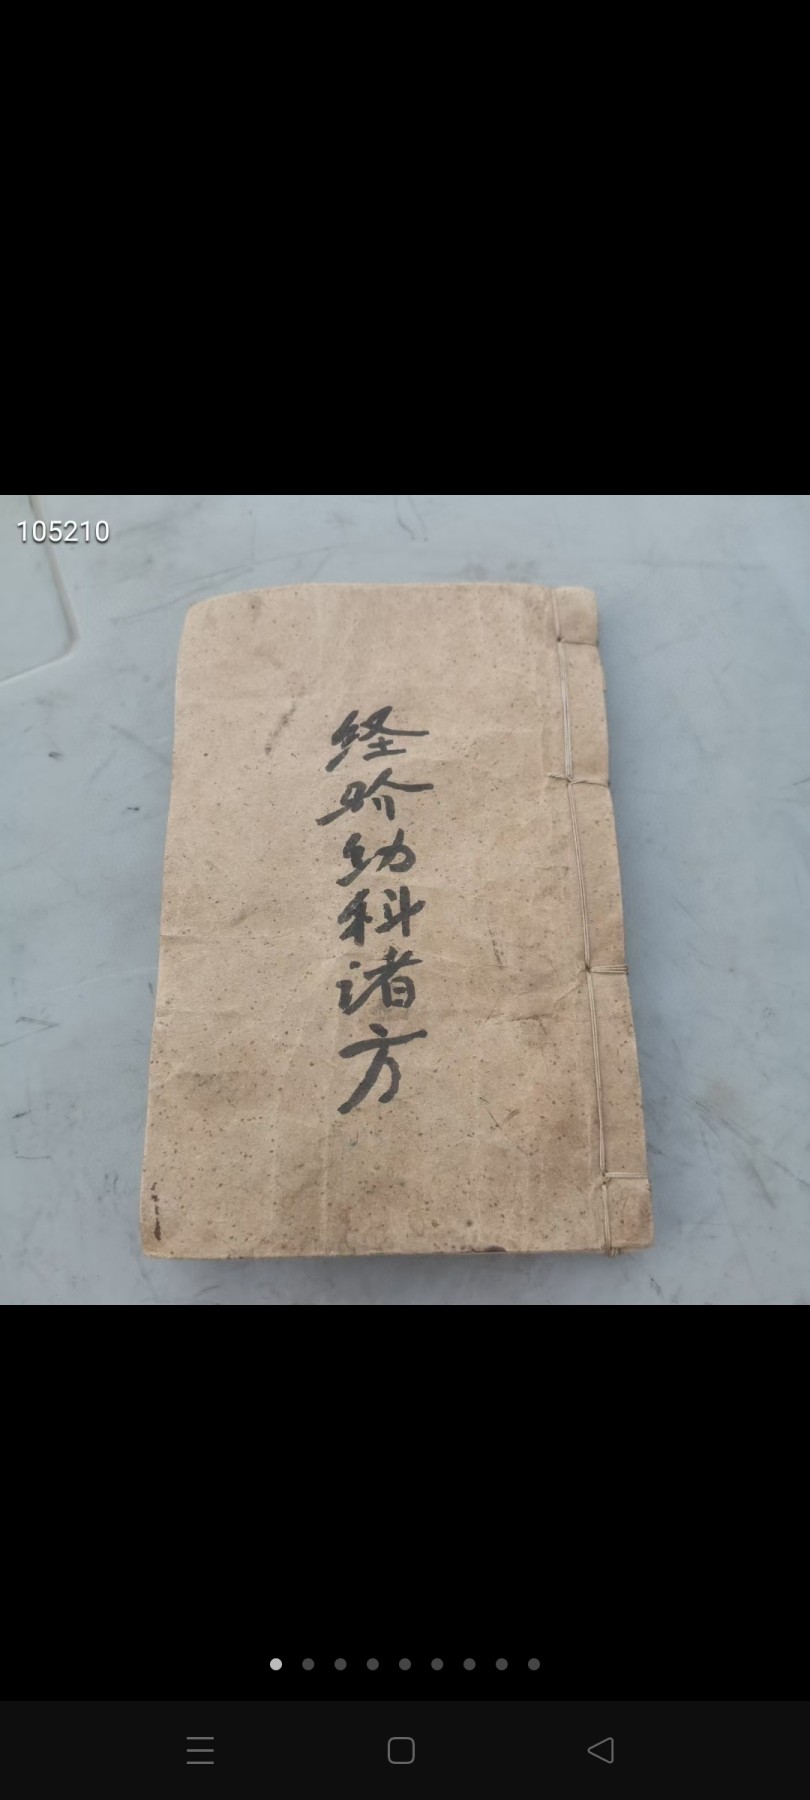 105210
経験幼科诸方